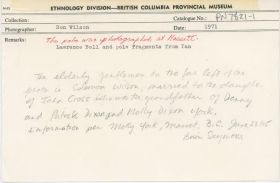 ETHNOLOGY DIVISION—BRITISH COLUMBIA PROVINCIAL MUSEUM
Collection: Catalogue No.: PN 7821-1
Photographer: Don Wilson Date: 1971
Remarks: The pole was photographed at Masset.
Lawrence Bell and pole fragments from Yan
The elderly gentleman to the far left of the
photo is Solomon Wilson, married to the daughter
of John Cross who was the grandfather of Denny
and Patrick Dixon and Molly Dixon York.
Information per Molly York, Masset, B.C. June 28/85
Brian Seymour